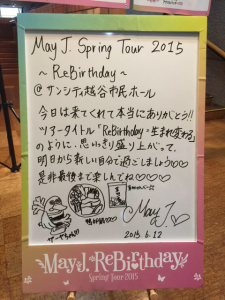 May J. Spring Tour 2015
~ ReBirthday ~
@ サンシティ越谷市民ホール
今日は来てくれて本当にありがとう!!
ツアータイトル「ReBirthday=生まれ変わる」
のように、思いっきり盛り上がって、
明日から新しい自分で過ごしましょう♡♡
是非最後まで楽しんでね♡♡♡♡
May J. ♡
2015. 6. 12
May J. ReBirthday
Spring Tour 2015